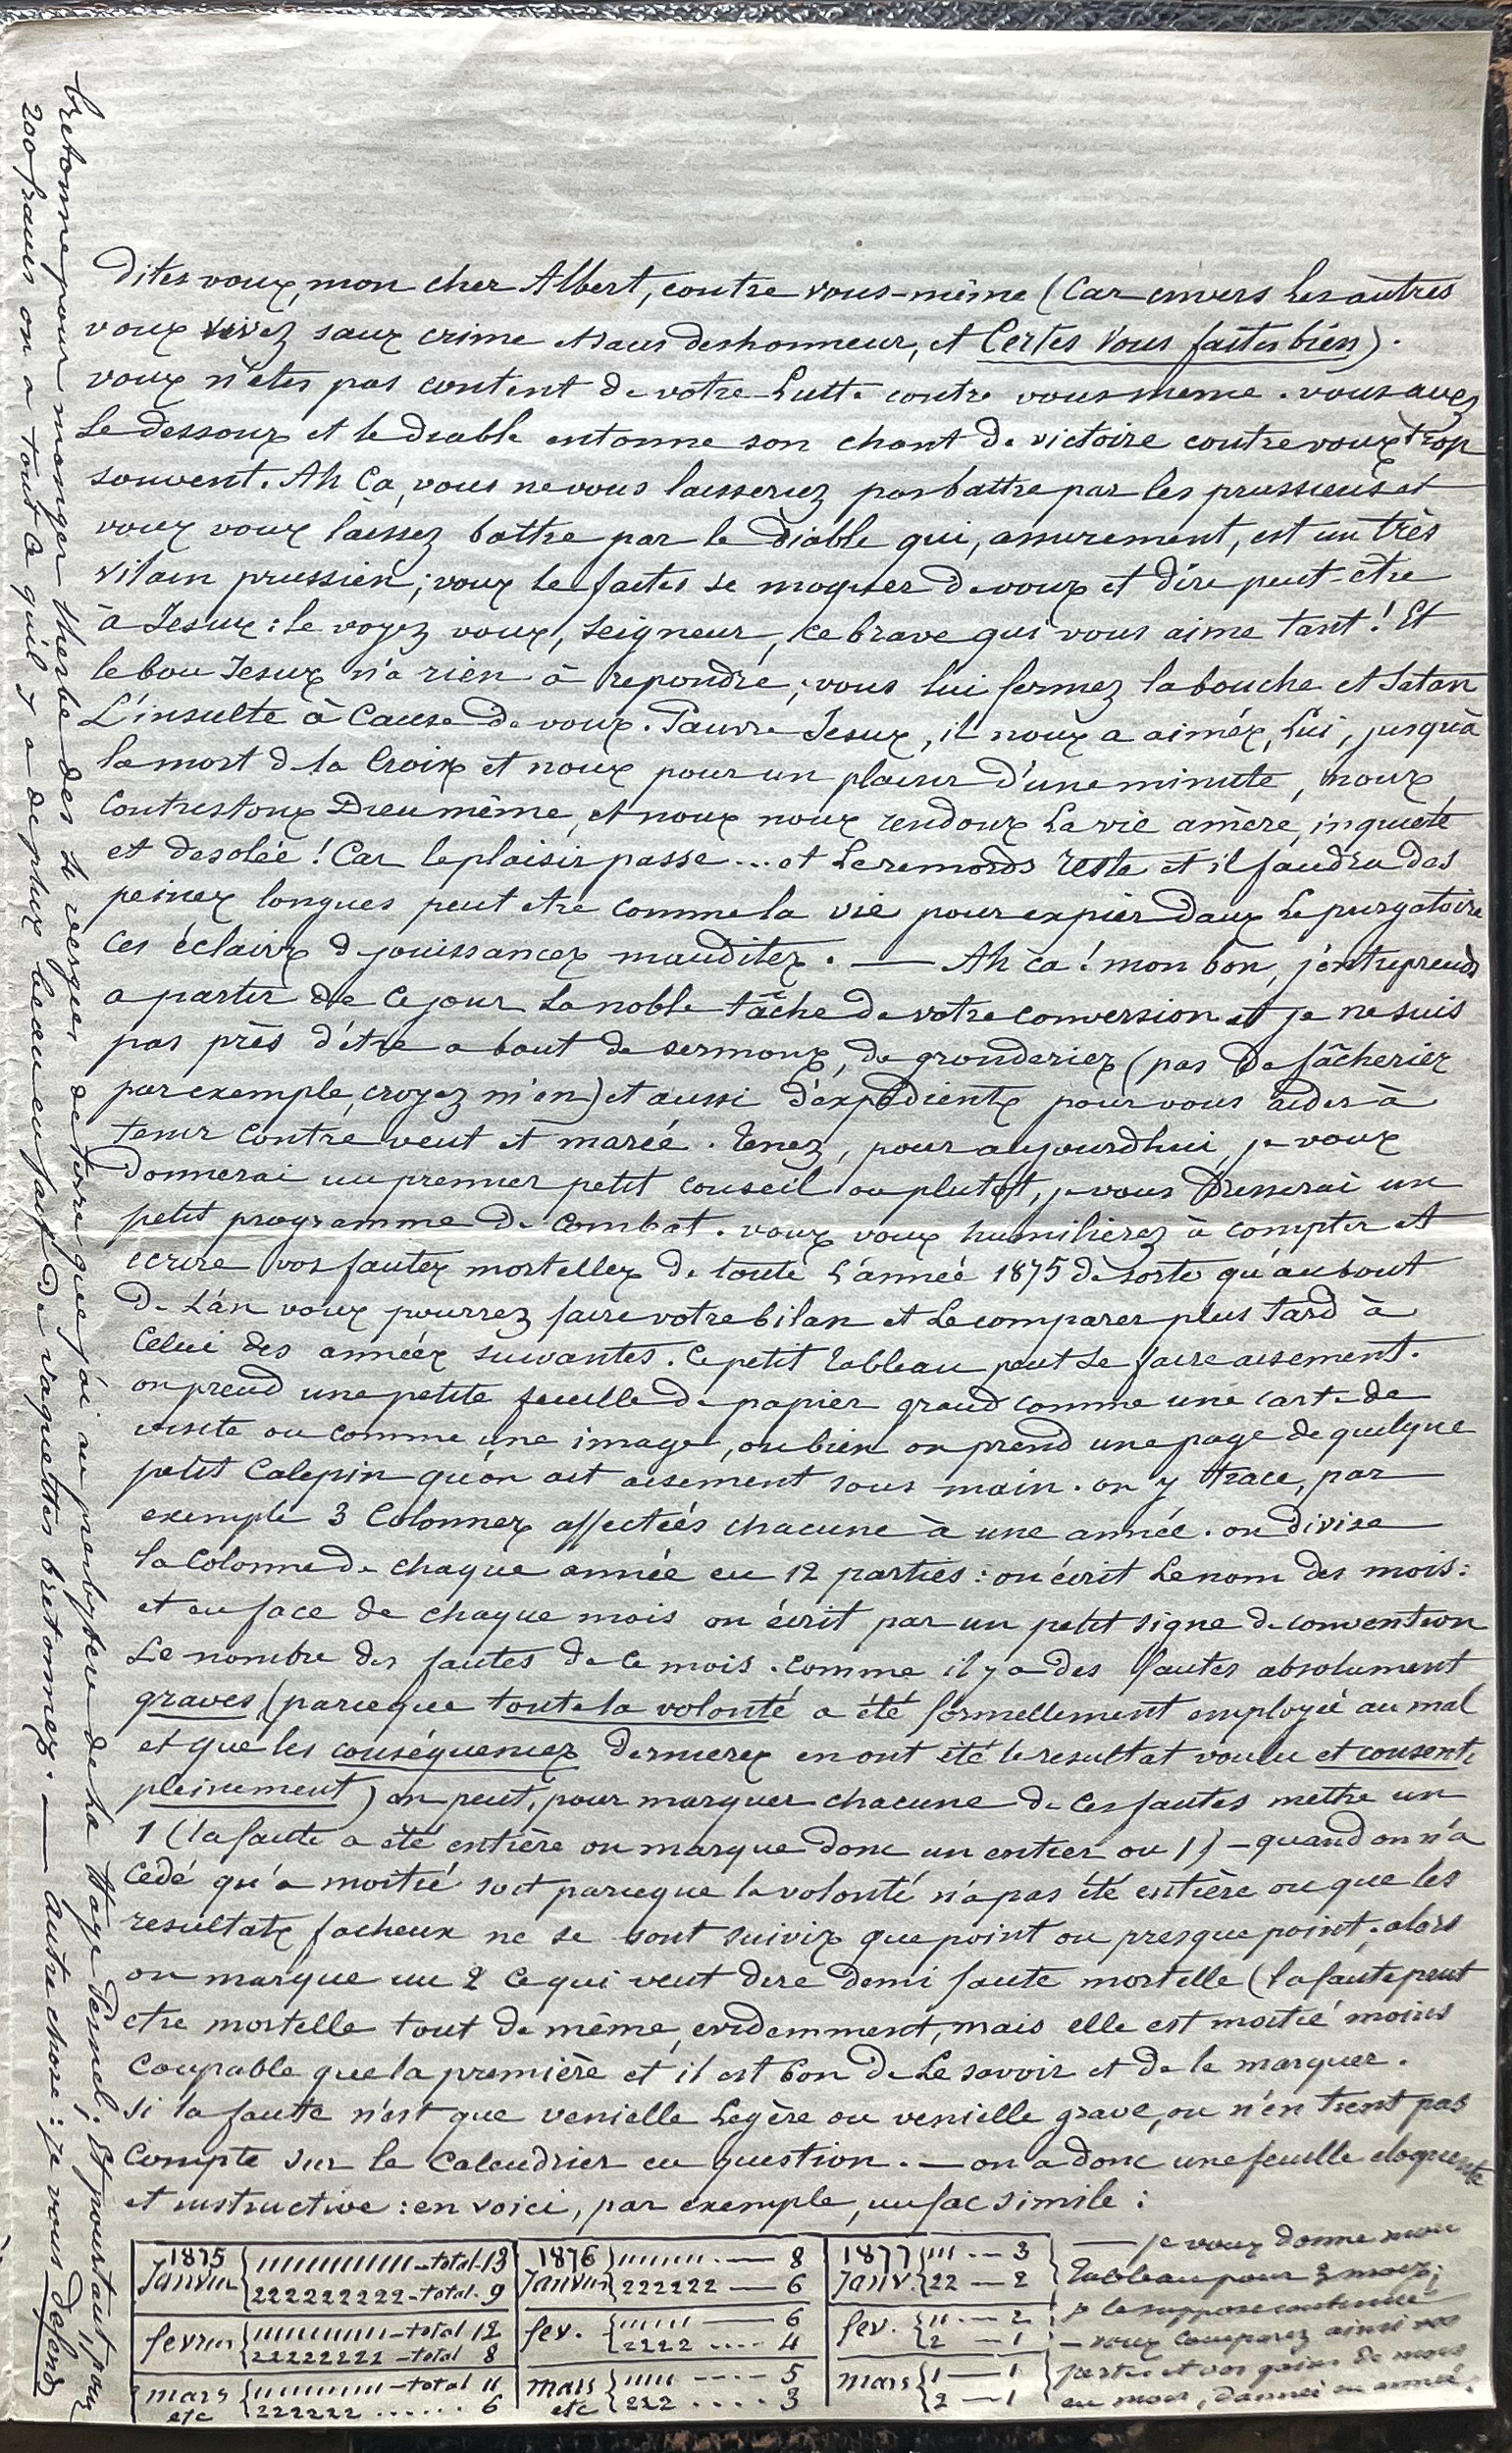 Dites vous, mon cher Albert, contre vous-même (car envers les autres
vous vivez sans crime et sans deshonneur, et Certes Vous faites bien).
vous n'etes pas content de votre Lutte contre vous meme. vous avez
Le dessous et le diable entonne son chant de victoire contre vous trop
souvent. Ah ça, vous ne vous laisseriez pas battre par les prussiens et
vous vous laissez battre par le Diable qui, assurement, est un très
vilain prussien; vous le faites se moquer de vous et dire peut-être
à Jesus: le voyez vous, Seigneur, ce brave qui vous aime tant! Et
le bon Jesus n'a rien à repondre; vous lui fermez la bouche et Satan
L'insulte à Cause de vous. Pauvre Jesus, il nous a aimés, Lui, jusqu'à
la mort de la Croix et nous pour un plaisir d'une minute, nous
contristons Dieu même, et nous nous rendons La vie amère, inquiete
et desolée! Car le plaisir passe... et Le remords reste et il faudra des
peines longues peut etre comme la vie pour expier dans Le purgatoire
ces éclairs de jouissances maudites. — Ah ca! mon bon, j'entreprends
a partir de ce jour La noble tâche de votre conversion et je ne suis
pas près d'être a bout de sermons, de gronderies (pas De fâcheries
par exemple, croyez m'en) et aussi d'expedients pour vous aider à
tenir contre vent et marée. Tenez, pour aujourdhui, je vous
Donnerai un premier petit conseil ou plutot, je vous Dresserai un
petit programme de Combat. vous vous humilierez à compter et
ecrire vos fautes mortelles de toute L'année 1875 de sorte qu'au bout
De L'an vous pourrez faire votre bilan et Le comparer plus tard à
Celui des années suivantes. Ce petit tableau peut Se faire aisement.
on prend une petite feuille de papier grand comme une carte de
visite ou comme une image, ou bien on prend une page de quelque
petit Calepin qu'on ait aisement sous main. on y trace, par
exemple 3 Colonnes affectées chacune à une année. on divise
la Colonne de chaque année en 12 parties: on écrit Le nom des mois:
et en face de chaque mois on écrit par un petit signe de convention
Le nombre des fautes de ce mois. Comme il y a des fautes absolument
graves (parceque toute la volonté a été formellement employée au mal
et que les conséquences dernieres en ont été le resultat voulu et consenti
pleinement) on peut, pour marquer chacune de ces fautes mettre un
1 (la faute a été entière on marque donc un entier ou 1) - quand on n'a
cedé qu'a moitié soit parceque la volonté n'a pas été entière ou que les
resultats facheux ne se sont suivis que point ou presque point, alors
on marque un 2 ce qui veut dire demi faute mortelle (la faute peut
etre mortelle tout de même, evidemment, mais elle est moitié moins
Coupable que la première et il est bon de Le savoir et de le marquer.
Si la faute n'est que venielle Legère ou venielle grave, on n'en tient pas
Compte sur le Calendrier en question. — on a donc une feuille eloquente
et instructive: en voici, par exemple, un fac simile:
1875 Janvier { 1111111111111 - total 13
222222222 - total 9
fevrier { 111111111111 - total 12
22222222 - total 8
mars { 11111111111 - total 11
etc 222222 ...... 6
1876 Janvier { 11111111. — 8
222222 — 6
fev. { 111111 — 6
2222 .... 4
mars { 11111 ---- 5
etc 222 .... 3
1877 Janv. { 111 .-- 3
22 — 2
fev. { 11 .-- 2
2 — 1
mars { 1 — 1
2 — 1
— je vous donne mon
Tableau pour 3 mois;
je le suppose continué
— vous comparez ainsi vos
pertes et vos gains de mois
en mois, d'année en année.
bretonne pour manger therbe des le verger de terre que j'ai au presbytere de La Haye Pesnel; Et pourtant pour
200 francs on a tout ce qu'il y a de plus beau en fait de vaquettes bretonnes. — Autre chose: je vous defends